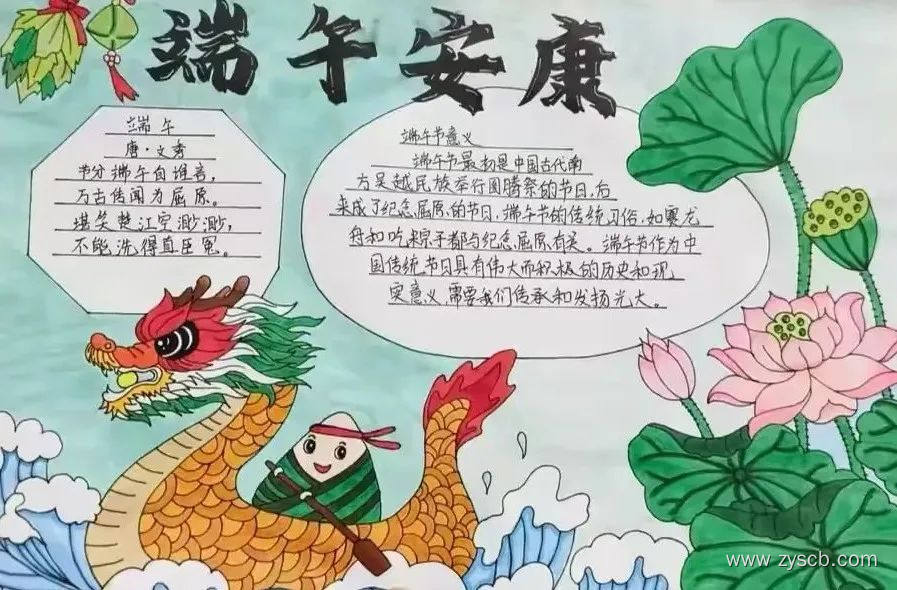 端午安康
端午
唐·文秀
节分端午自谁言，
万古传闻为屈原。
堪笑楚江空渺渺，
不能洗得直臣冤。
端午节意义
端午节最初是中国古代南
方吴越民族举行图腾祭的节日，后
来成了纪念屈原的节日，端午节的传统习俗，如赛龙
舟和吃粽子都与纪念屈原有关。端午节作为中
国传统节日具有伟大而积极的历史和现
实意义，需要我们传承和发扬光大。
www.zyscb.com